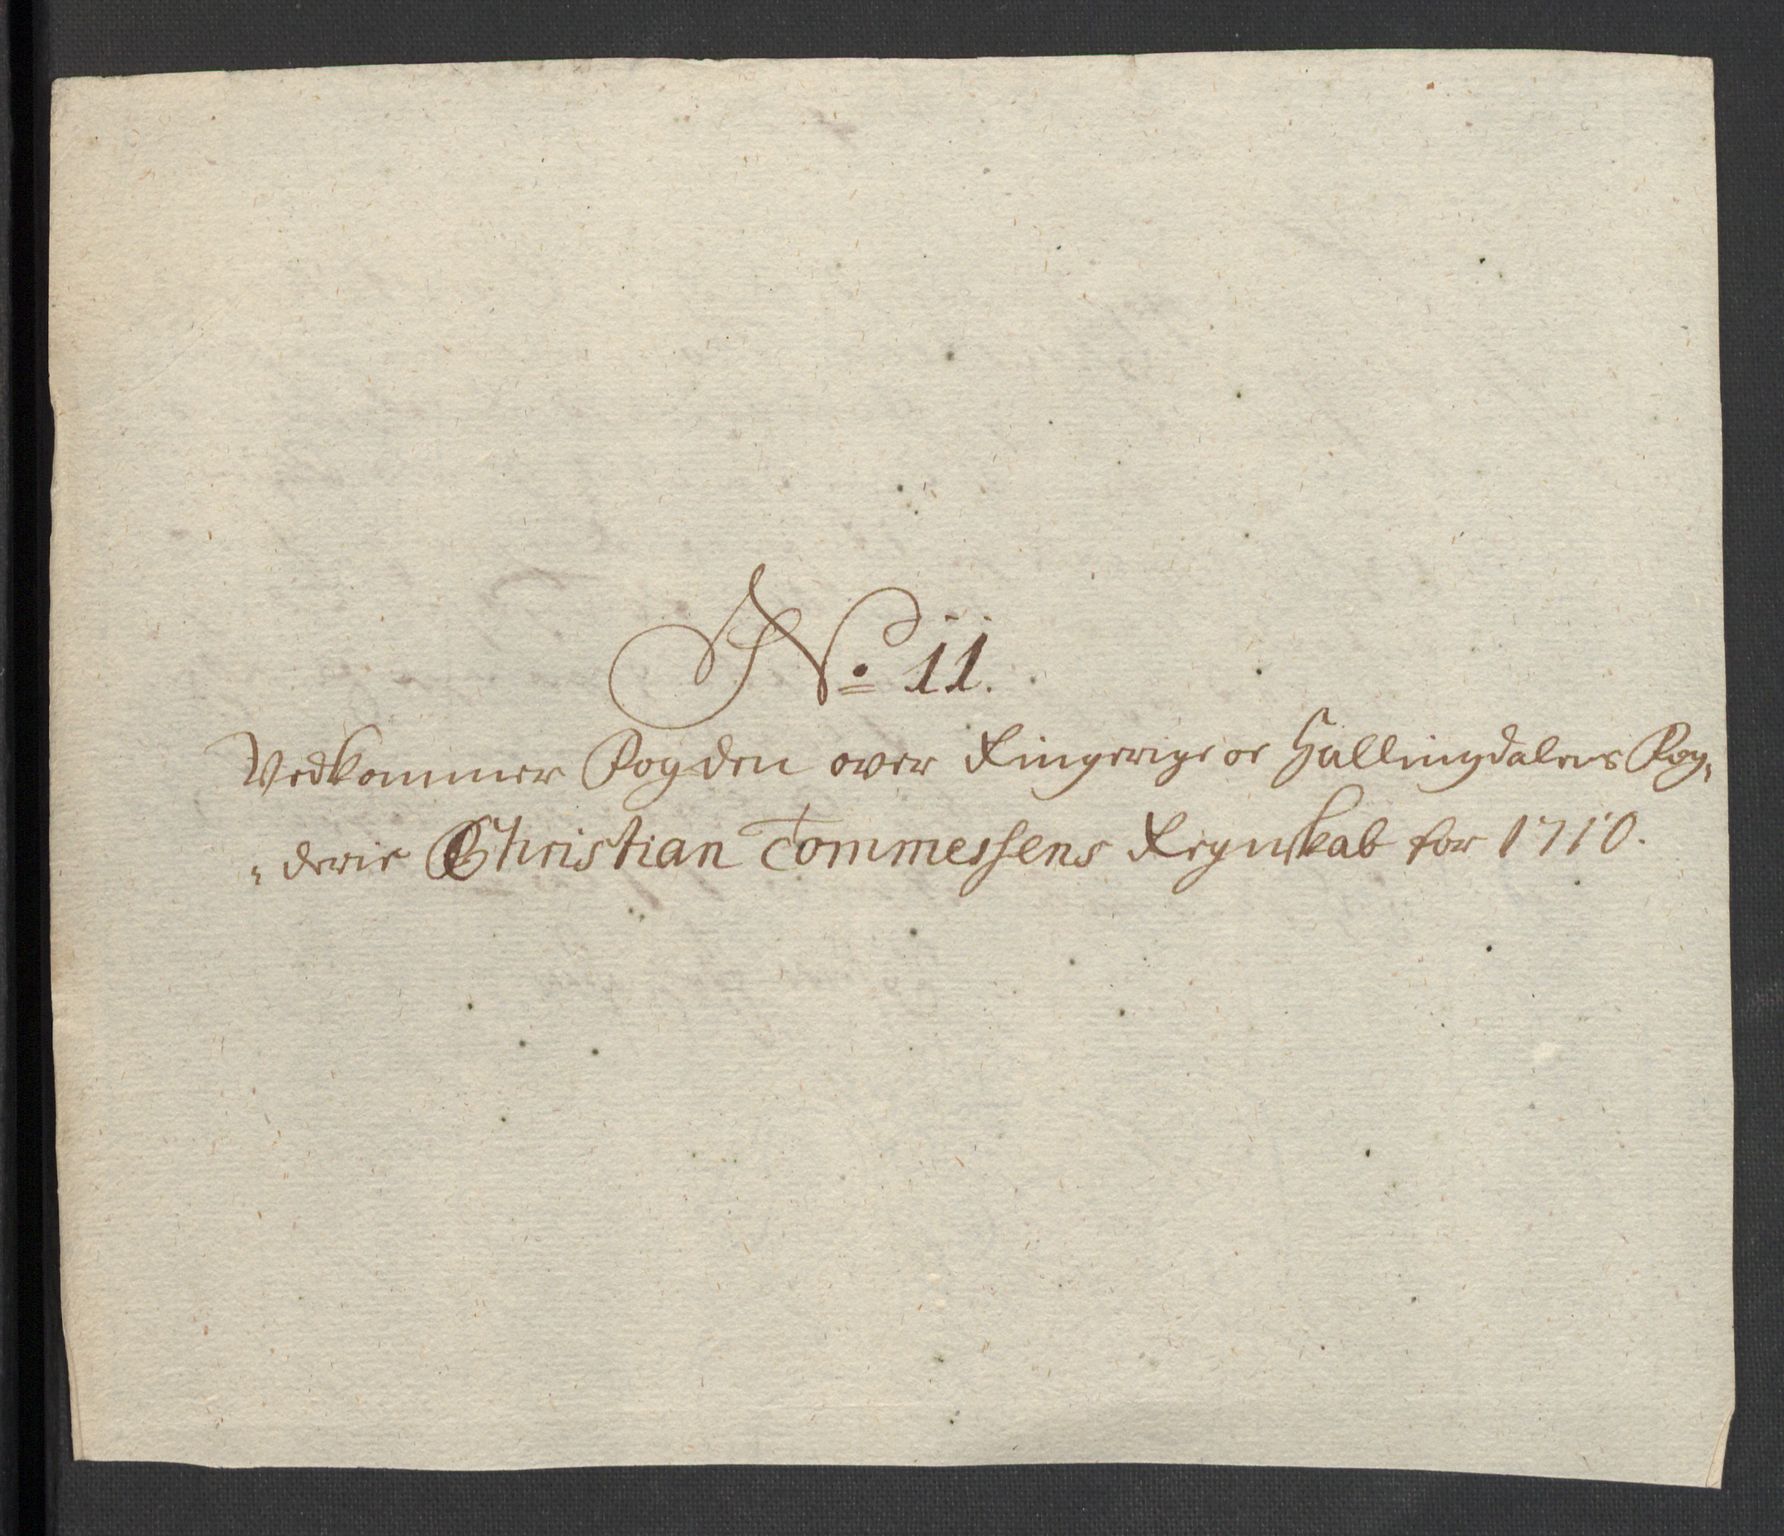 No 11.
Vedkommer Fogden over Ringerige oc Hallingdalens Fog,
„ derie Christian Tommesens Regnskab for 1710.